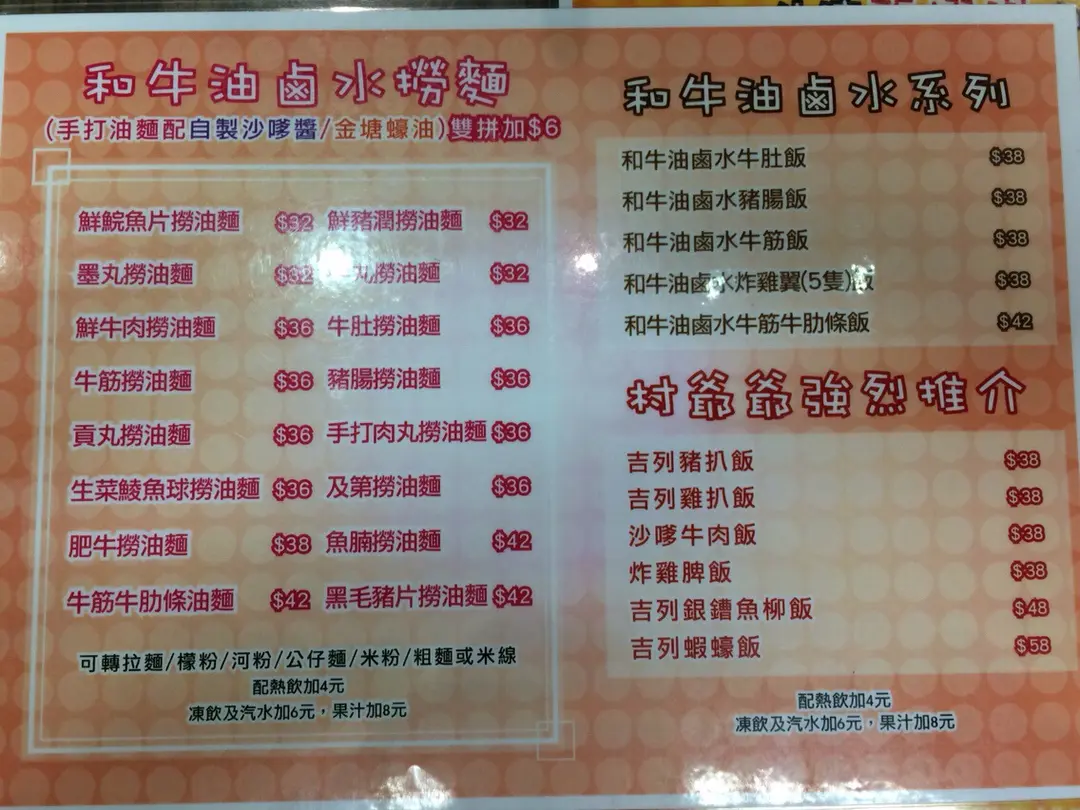 和牛油鹵水撈麵
(手打油麵配自製沙嗲醬/金塘蠔油)雙拼加$6
鮮鯇魚片撈油麵 $32 鮮豬潤撈油麵 $32
墨丸撈油麵 $32 丸撈油麵 $32
鮮牛肉撈油麵 $36 牛肚撈油麵 $36
牛筋撈油麵 $36 豬腸撈油麵 $36
貢丸撈油麵 $36 手打肉丸撈油麵 $36
生菜鯪魚球撈油麵 $36 及第撈油麵 $36
肥牛撈油麵 $38 魚腩撈油麵 $42
牛筋牛肋條油麵 $42 黑毛豬片撈油麵 $42
可轉拉麵/檬粉/河粉/公仔麵/米粉/粗麵或米線
配熱飲加4元
凍飲及汽水加6元，果汁加8元
和牛油鹵水系列
和牛油鹵水牛肚飯 $38
和牛油鹵水豬腸飯 $38
和牛油鹵水牛筋飯 $38
和牛油鹵水炸雞翼(5隻)飯 $38
和牛油鹵水牛筋牛肋條飯 $42
村爺爺強烈推介
吉列豬扒飯 $38
吉列雞扒飯 $38
沙嗲牛肉飯 $38
炸雞脾飯 $38
吉列銀鱈魚柳飯 $48
吉列蝦蠔飯 $58
配熱飲加4元
凍飲及汽水加6元，果汁加8元